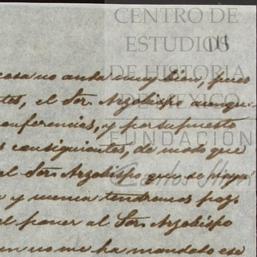 CENTRO DE
ESTUDIOS
DE HISTORIA
DE MEXICO
FUNDACIÓN
cosa no anda muy bien, pues
el Sor. Arzobispo aunque
conferencias, y por supuesto
consiguientes, de modo que
al Sor. Arzobispo que se vaya
y nunca tendremos paz
el poner al Sor. Arzobispo
no me ha mandado ese